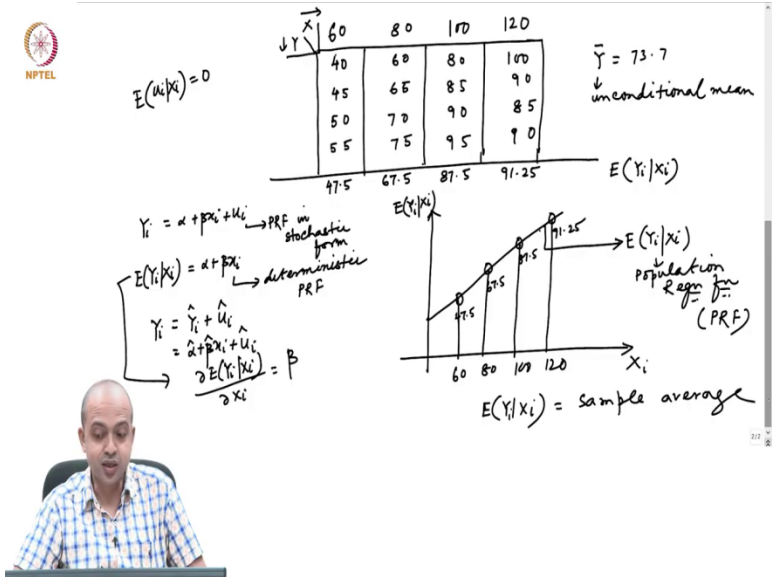 NPTEL
E(ui|xi)=0
X 60 80 100 120
Y
40 60 80 100
45 65 85 90
50 70 90 85
55 75 95 90
47.5 67.5 87.5 91.25 E(Yi|Xi)
Ȳ = 73.7
unconditional mean
Yi = α+βxi+ui → PRF in
stochastic
form
E(Yi|Xi) = α+βxi → deterministic
PRF
Yi = Ŷi + ûi
= α̂+β̂xi+ûi
∂E(Yi|Xi)/∂xi = β
E(Yi|Xi)
47.5 67.5 87.5 91.25
60 80 100 120 Xi
E(Yi|Xi)
Population
Regn fn
(PRF)
E(Yi|Xi) = sample average
2/2